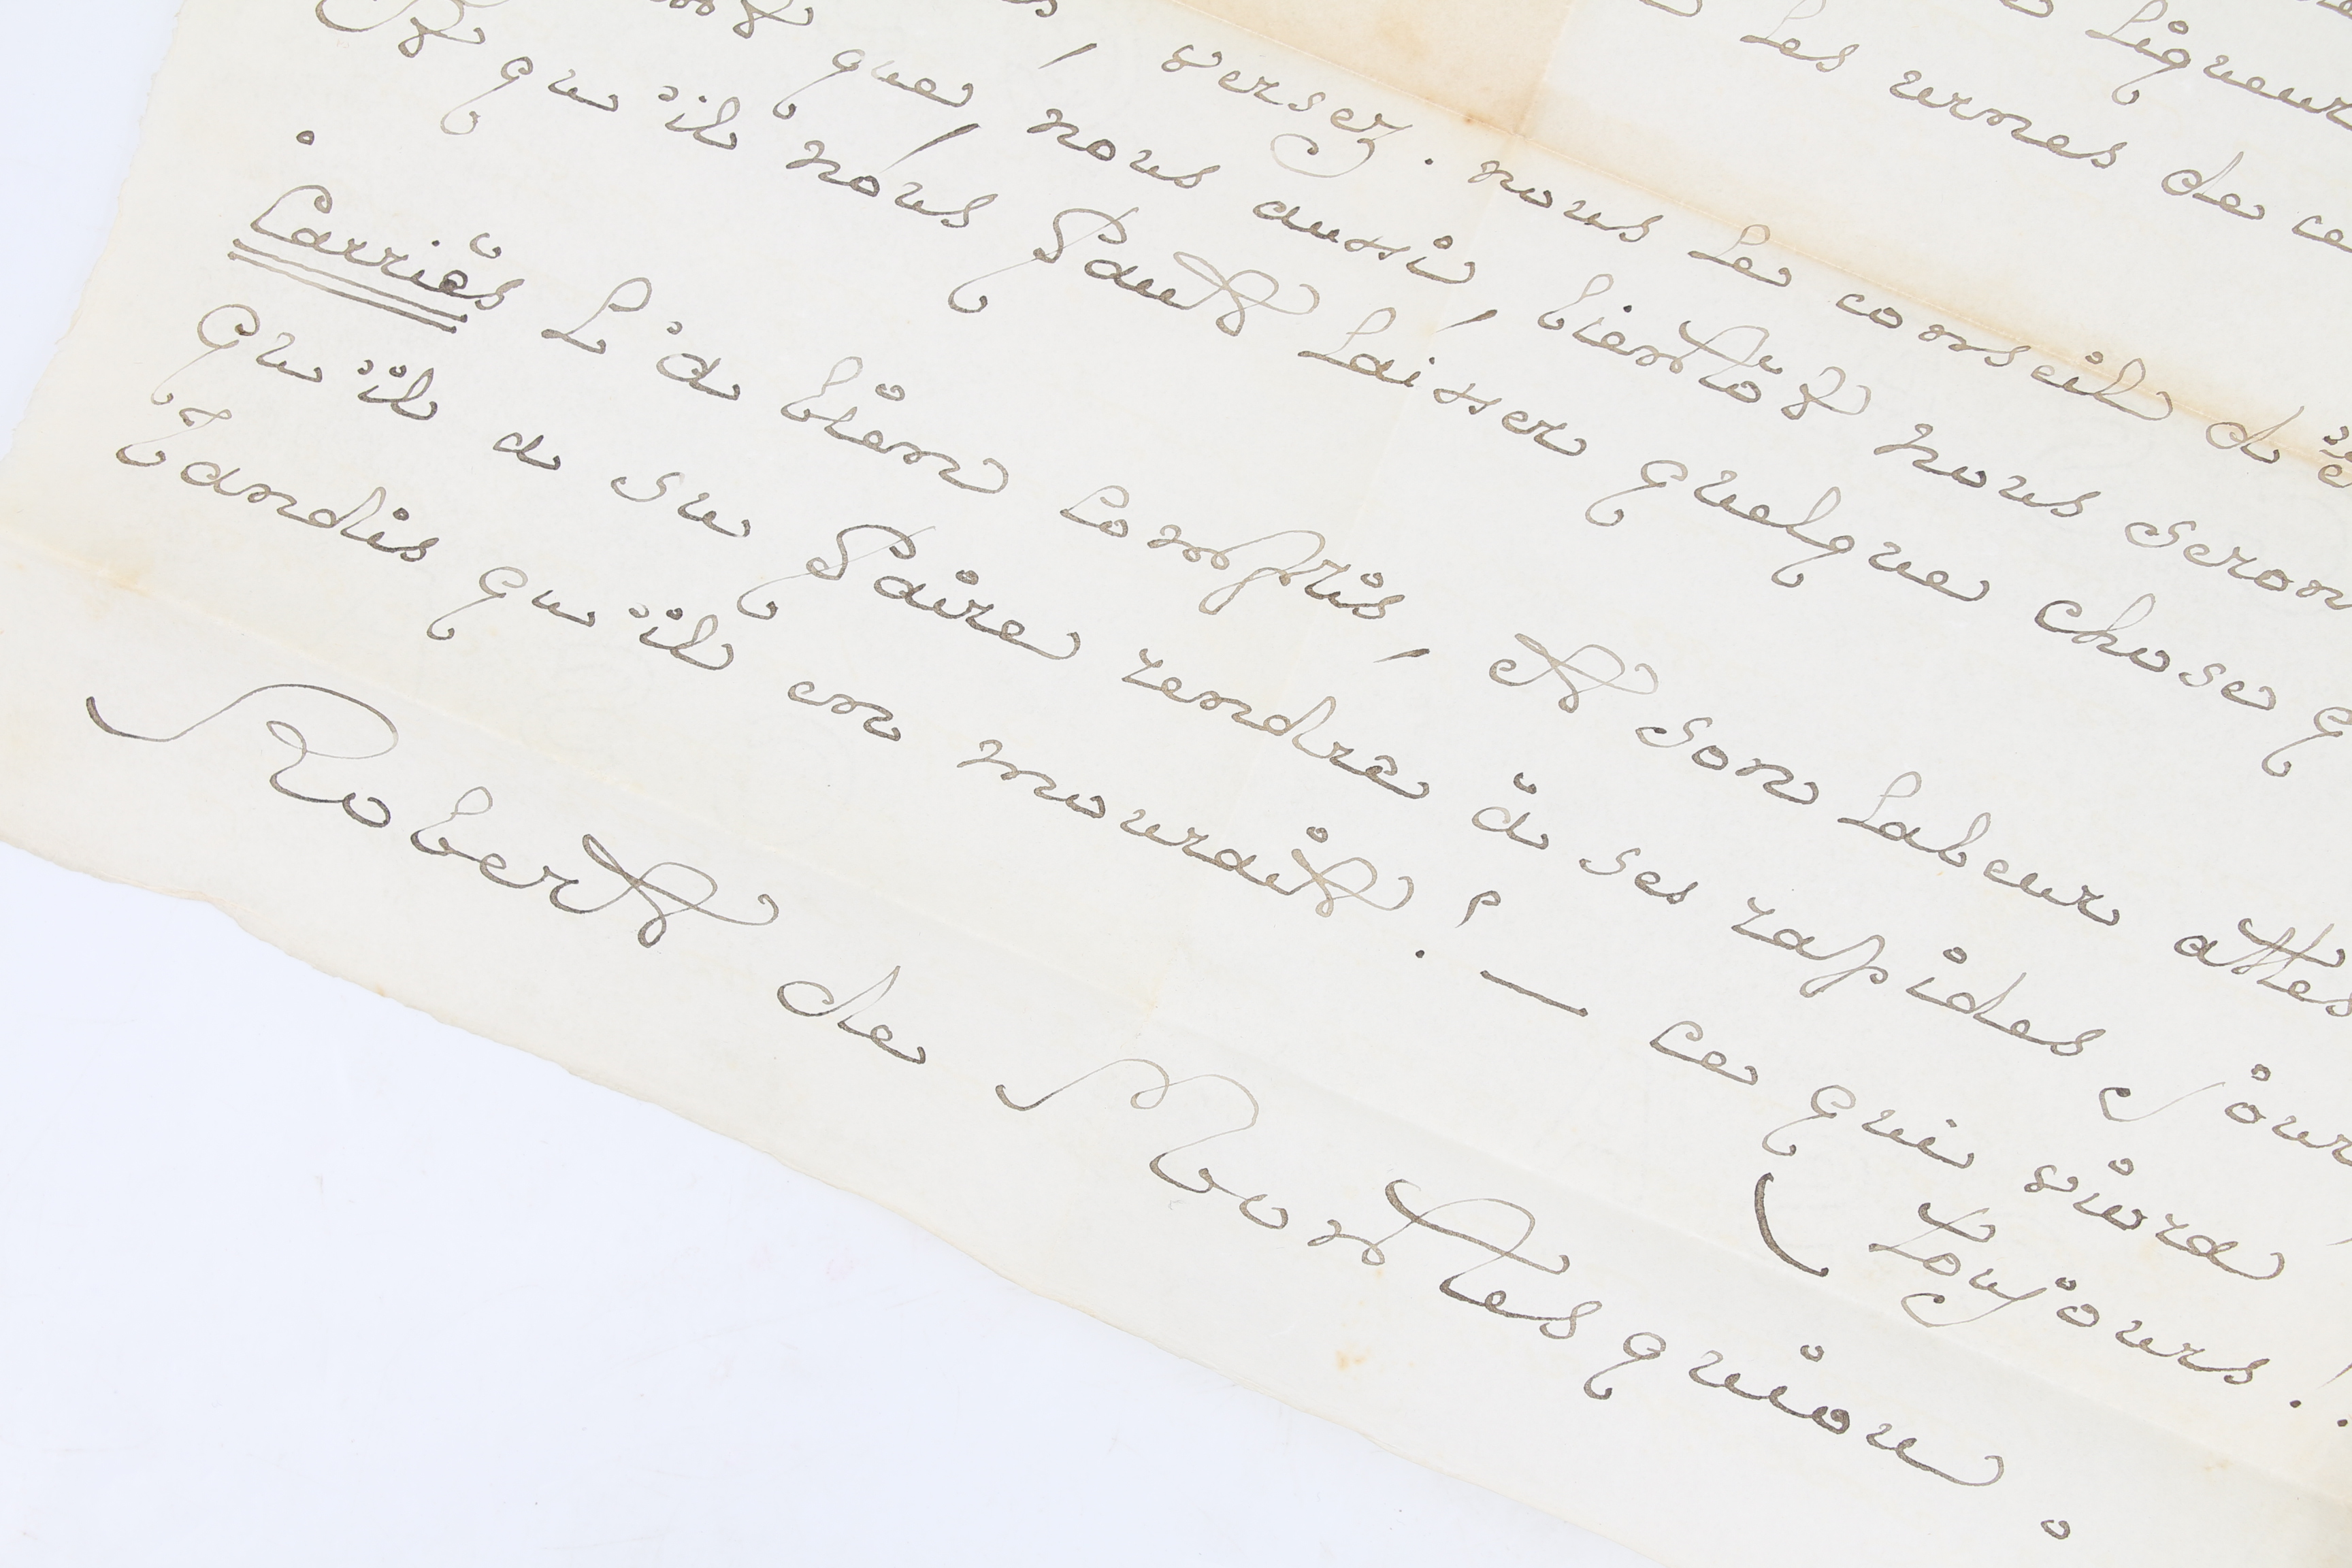 liqueur
les urnes de ce
, verser. nous le conseil d'
que nous aussi, bientôt nous seron
qu'il nous faut laisser quelque chose q
Carriès l'a bien compris, et son labeur attes
qu'il a su faire rendre à ses rapides jour
tandis qu'il en mourait ! — ce qui vivra
toujours.
Robert de Montesquiou.